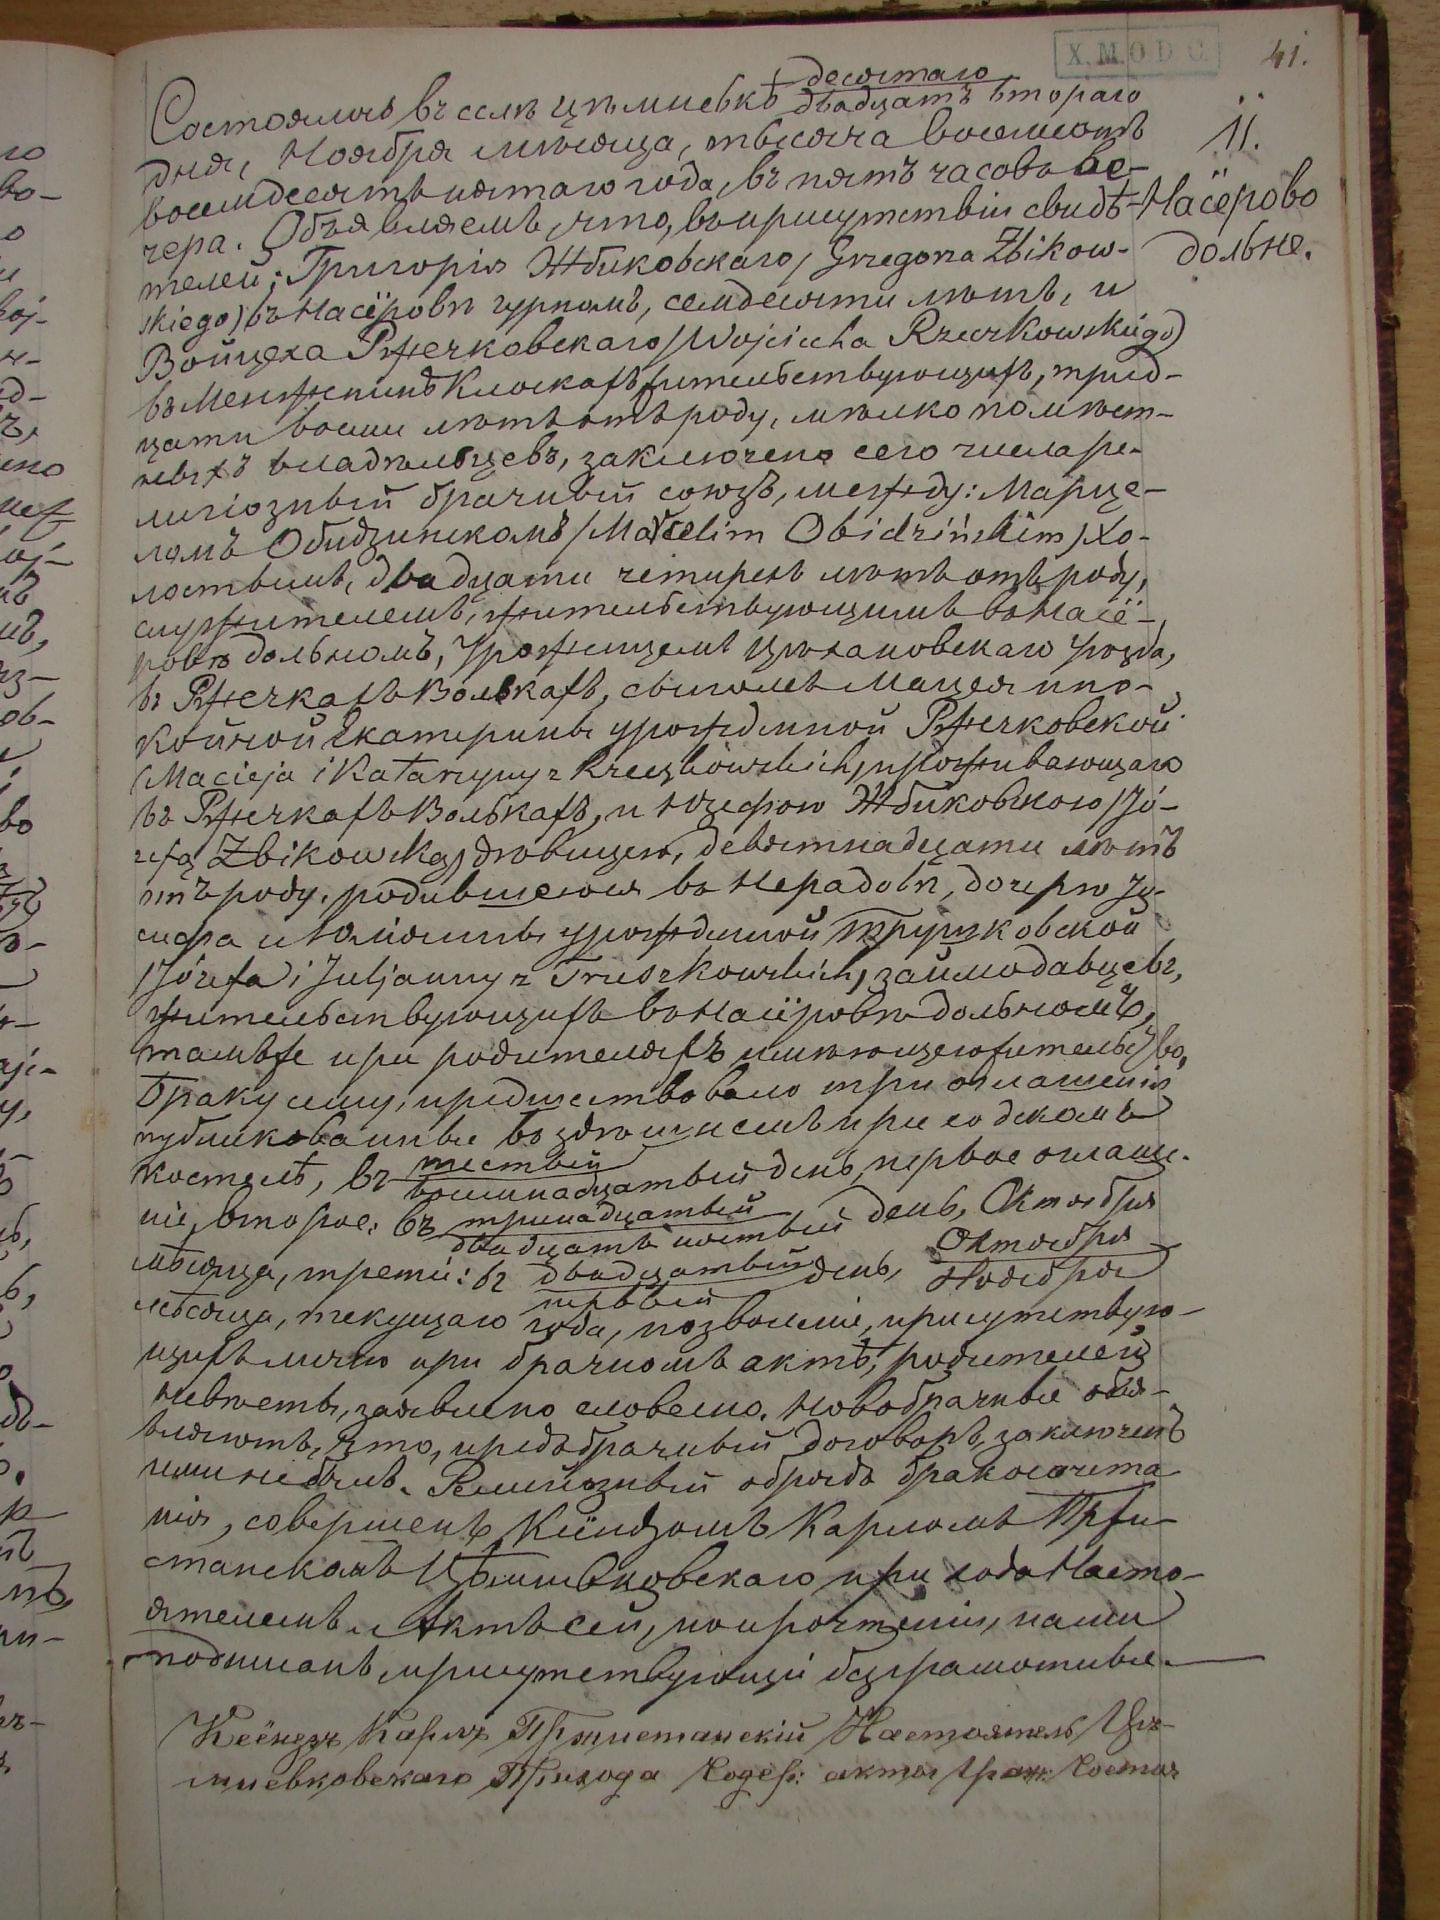 X.M.O.D.C.
41.
11.
Насёрово
дольне.
Состоялось въ селѣ Цѣмнѣвкѣ десятаго
двадцать втораго
дня, Ноября мѣсяца, тысяча восемсотъ
восемдесятъ пятаго года, въ пять часовъ ве-
чера. Объявляемъ, что, въ присутствіи свидѣ-
телей: Григорія Жбиковскаго /Grzegorza Zbikow-
skiego/ въ Насёровѣ гурномъ, семдесяти лѣтъ, и
Войцеха Ржечковскаго /Wojciecha Rzeczkowskiego)
въ жительствующихъ, трид-
цати восми лѣтъ отъ роду, мѣлкопомѣст-
ныхъ владѣльцевъ, заключено сего числа ре-
лигіозный брачный союзъ, между: Марце-
лямъ Обидзинскомъ /Marcelim Obidzińskim/ хо-
лостымъ, двадцати четирехъ лѣтъ отъ роду,
служителемъ, жительствующимъ въ Насё-
ровѣ дольномъ, урожнцемъ Цѣхановскаго уѣзда,
въ Ржечкахъ Волькахъ, сыномъ Мацея и по-
койной Екатерины урожденной Ржечковской
(Macieja i Katarzyny z Rzeczkowskich), проживающаго
въ Ржечкахъ Волькахъ, и Юзефою Жбиковскою /Jó-
zefą Zbikowską/ дѣвицею, девятнадцати лѣтъ
отъ роду, родившеюся въ Нерадовѣ, дочерю Іо-
сифа и Юліянны урожденной Трушковской
/Józefa i Juljanny z Truszkowskich/ займодавцевъ,
жительствующихъ въ Насёровѣ дольномъ,
тамъже при родителяхъ имѣющею жительство,
Браку сему, предшествовало три оглашенія
публикованные въ здѣшнемъ приходскомъ
костелѣ, въ шестый
восмнадцатый день, первое оглаше-
ніе, второе: въ тринадцатый
двадцать пятый день, Октября
мѣсяца, третіе: въ двадцатый день, Октября
первый Ноября
мѣсяца, текущаго года, позволеніе, присутствую-
щихъ лично при брачномъ актѣ, родителей
невѣсты, заявлено словесно. Новобрачные объя-
вляютъ, что, предбрачный договоръ, заключенъ
ими не былъ. Религіозный обрядъ бракосочета
нія, совершенъ Ксёндзомъ Карломъ Пржи-
станскомъ Цѣмнѣвковскаго прихода Насто-
ятелемъ. Актъ сей, по прочтеніи, нами
подписанъ, присутствующіі безграмотные.
Ксёндзъ Карлъ Пржистанскій Настоятель Цѣ-
мневковскаго Прихода Содер: акты Граж: Состоя